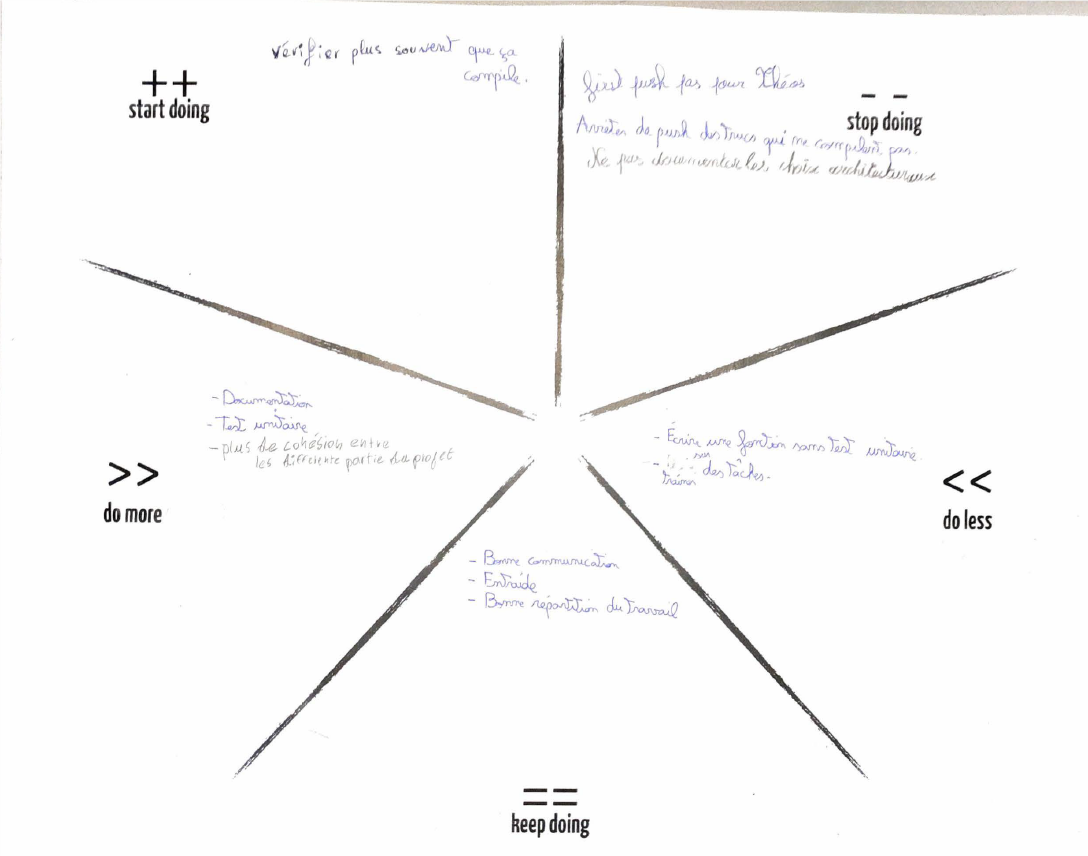 ++
start doing
Vérifier plus souvent que ça
compile.
push pas pour Théos
Arrêter de push des trucs qui ne compilent pas.
Ne pas documenter les choix architecturaux
-- 
stop doing
- Documentation
- Test unitaire
- plus de cohésion entre
les différente partie du projet
>>
do more
- Écrire une fontion sans test unitaire.
- trainer sur des tâches.
<<
do less
- Bonne communication
- Entraide
- Bonne répartition du travail
==
keep doing